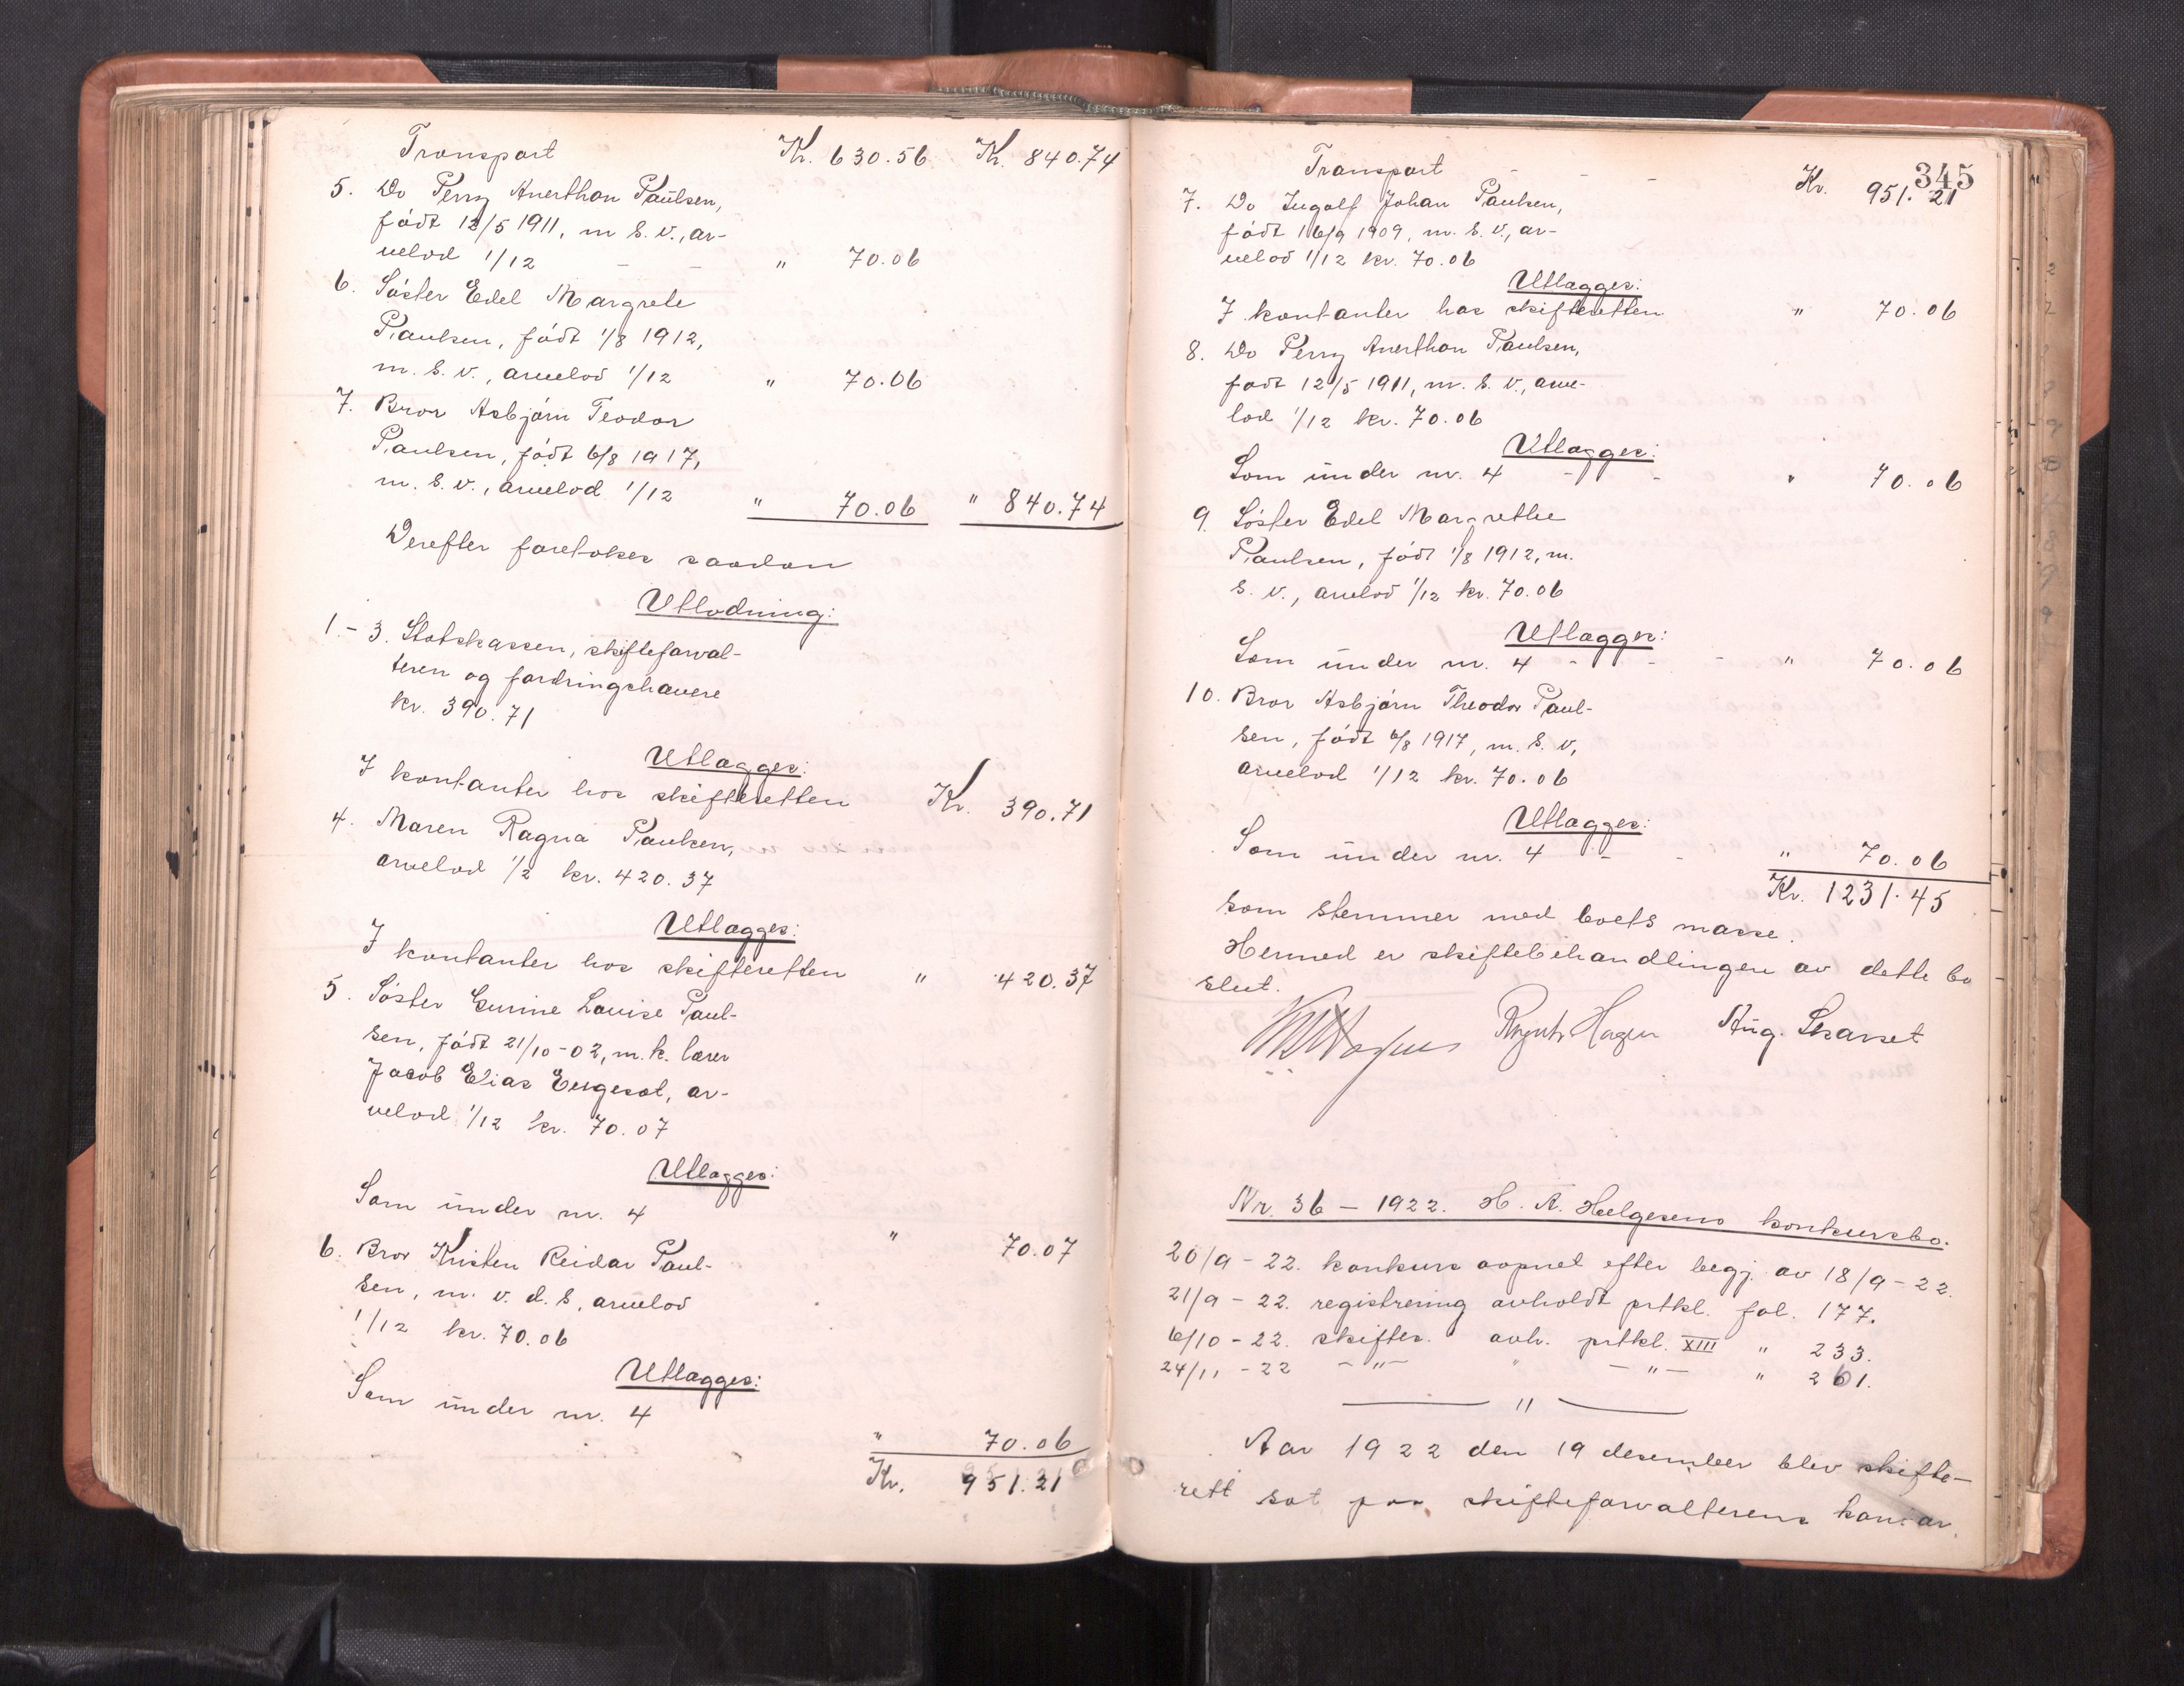 Transport Kr. 630.56 Kr. 840.74
5. Do Perry Anerthon Paulsen,
født 12/5 1911, m. s. v., ar-
velod 1/12 - - " 70.06
6. Søster Edel Margrete
Paulsen, født 1/8 1912,
m. s. v., arvelod 1/12 " 70.06
7. Bror Asbjørn Teodor
Paulsen, født 6/8 1917,
m. s. v., arvelod 1/12 " 70.06 " 840.74
Derefter foretokes saadan
Utlodning:
1.-3. Statskassen, skifteforval-
teren og fordringshavere
kr. 390.71
Utlægges:
I kontanter hos skifteretten Kr. 390.71
4. Maren Ragna Paulsen,
arvelod 1/2 kr. 420.37
Utlægges:
I kontanter hos skifteretten " 420.37
5. Søster Gurine Lovise Paul-
sen, født 21/10-02, m. k. lærer
Jacob Elias Engesat, ar-
velod 1/12 kr. 70.07
Utlægges:
Som under nr. 4 " 70.07
6. Bror Kristen Reidar Paul-
sen, m. v. d. s, arvelod
1/12 kr. 70.06
Utlægges:
Som under nr. 4 " 70.06
Kr. 951.21
345
Transport - - - Kr. 951.21
7. Do Ingolf Johan Paulsen,
født 16/9 1909, m. s. v., ar-
velod 1/12 kr. 70.06
Utlægges:
I kontanter hos skifteretten " 70.06
8. Do Perry Anerthon Paulsen,
født 12/5 1911, m. s. v., arve-
lod 1/12 kr. 70.06
Utlægges:
Som under nr. 4 - - " 70.06
9. Søster Edel Margrethe
Paulsen, født 1/8 1912, m.
s. v., arvelod 1/12 kr. 70.06
Utlægges:
Som under nr. 4 - - - " 70.06
10. Bror Asbjørn Theodor Paul-
sen, født 6/8 1917, m. s. v,
arvelod 1/12 kr. 70.06
Utlægges:
Som under nr. 4 - - " 70.06
Kr. 1231.45
som stemmer med boets masse.
Hermed er skiftebehandlingen av dette bo
slut.
Hagen Aug. Skarset
Nr. 36 - 1922. H. A. Helgesens konkursbo.
20/9-22. konkurs aapnet efter begj. av 18/9-22.
21/9-22. registrering avholdt prtkl. fol. 177.
6/10-22. skifter. avh. prtkl. XIII " 233.
24/11-22 -"- " -"- " 261.
"
Aar 1922 den 19 desember blev skifte-
rett sat paa skifteforvalterens kontor.